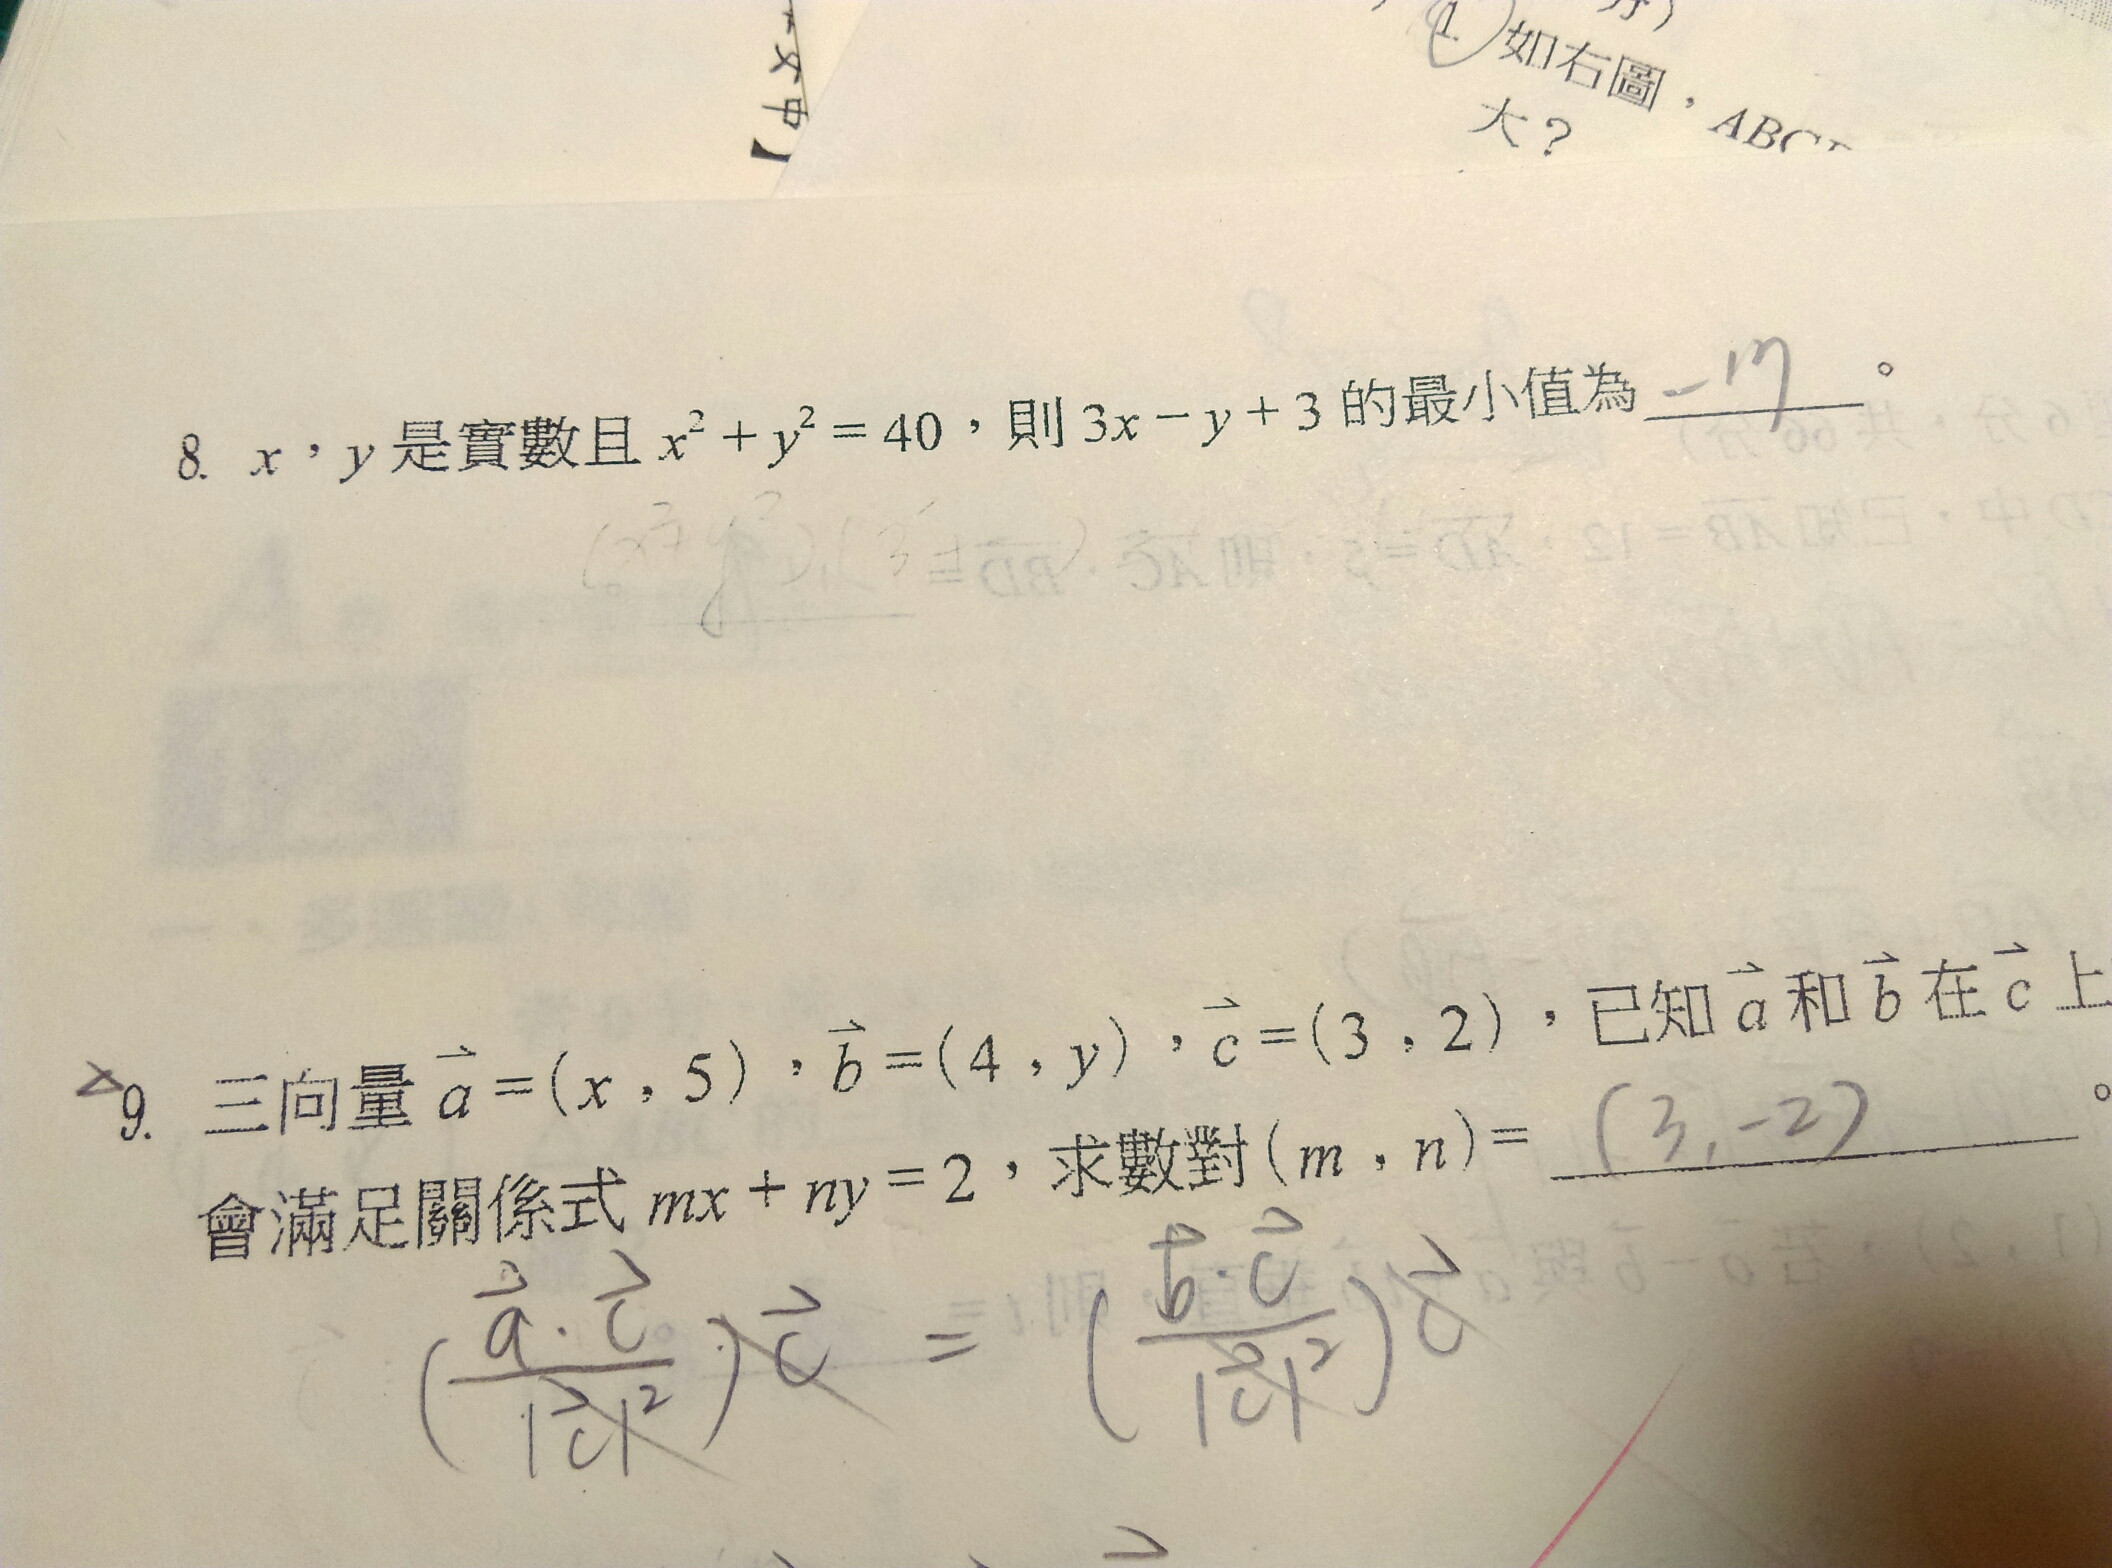 文中】
1. 如右圖，ABC
大？
8. x，y 是實數且 x² + y² = 40，則 3x − y + 3 的最小值為 −17 。
9. 三向量 a⃗ = (x , 5)，b⃗ = (4 , y)，c⃗ = (3 , 2)，已知 a⃗ 和 b⃗ 在 c⃗ 上
會滿足關係式 mx + ny = 2，求數對 (m , n) = (3, −2) 。
(a⃗·c⃗/|c⃗|²)·c⃗ = (b⃗·c⃗/|c⃗|²)c⃗